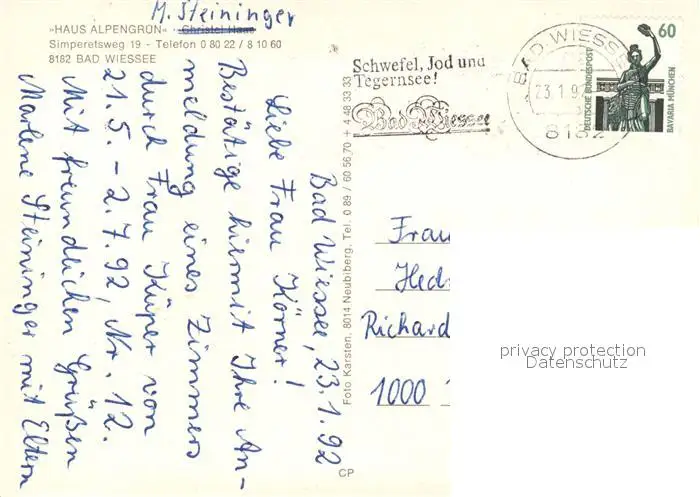 M. Steininger
»HAUS ALPENGRÜN« - Christel Haas
Simperetsweg 19 - Telefon 0 80 22 / 8 10 60
8182 BAD WIESSEE
Bad Wiessee, 23.1.92
Liebe Frau Körner!
Bestätige hiermit Ihre An-
meldung eines Zimmers
durch Frau Küper von
21.5. - 2.7.92, Nr. 12.
Mit freundlichen Grüßen
Marlene Steininger mit Eltern
Foto Karsten, 8014 Neubiberg, Tel. 0 89 / 60 56 70 + 4 48 33 33
CP
Schwefel, Jod und
Tegernsee!
Bad Wiessee
BAD WIESSE
23.1.9
8182
60
DEUTSCHE BUNDESPOST
BAVARIA MÜNCHEN
Frau
Hed
Richard
1000
privacy protection
Datenschutz